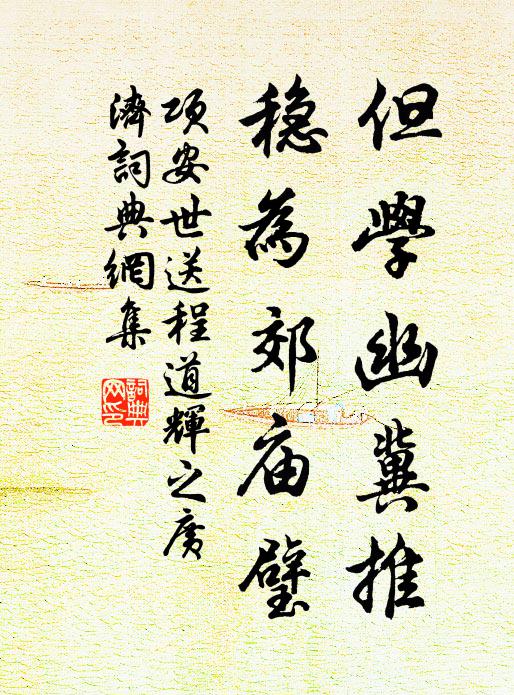 但學幽冀推
穩為郊庙璧
项安世送程道輝之廣
濟詞典網集
詞典
网印